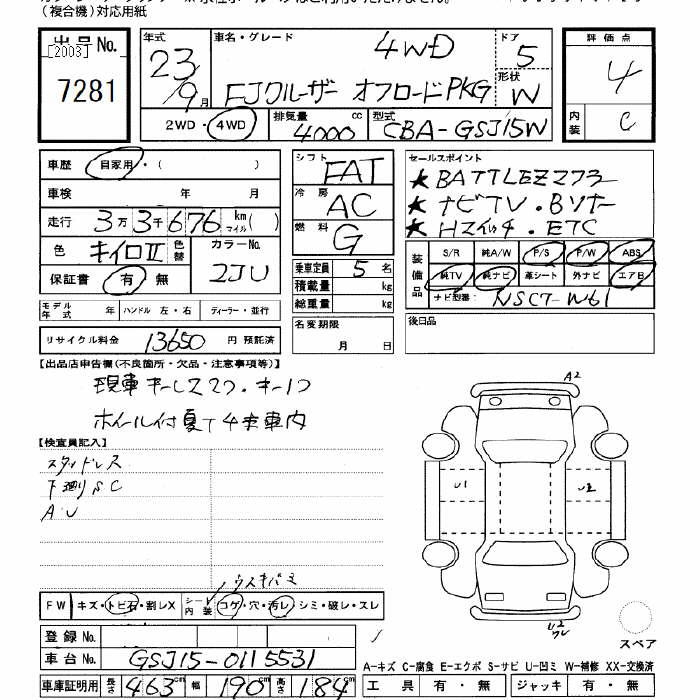 (複合機)対応用紙
出品No.
[2003]
7281
年式
23
9月
車名・グレード
4WD
FJクルーザー オフロードPKG
ドア
5
形状
W
2WD・4WD
排気量
4000 cc
型式
CBA-GSJ15W
評価点
4
内装
C
車歴 自家用・( )
車検 年 月
走行 3万3千676 km マイル( )
色 キイロII 色替
カラーNo.
2JU
保証書 有・無
シフト FAT
冷房 AC
燃料 G
乗車定員 5 名
積載量 kg
総重量 kg
名変期限
月 日
セールスポイント
★BATTLEZ273
★ナビTV・Bソナー
★Hスイッチ・ETC
装備品
S/R 純A/W P/S P/W ABS
純TV 純ナビ 革シート 外ナビ エアB
ナビ型番 NSCT-W61
後日品
モデル年式 年 ハンドル 左・右 ディーラー・並行
リサイクル料金 13650 円 預託済
【出品店申告欄(不良箇所・欠品・注意事項等)】
現車キーレス2ケ・キー1ケ
ホイール付夏T4本車内
【検査員記入】
スタッドレス
下廻りS.C
A.U
ウスキバミ
FW キズ・トビ石・割レX シート内装 コゲ・穴・汚レ・シミ・破レ・スレ
A2
U1
U2
スペア
登録No.
車台No. GSJ15-0115531
車庫証明用 長さ 463 cm 幅 190 cm 高さ 184 cm
A-キズ C-腐食 E-エクボ S-サビ U-凹ミ W-補修 XX-交換済
工具 有・無 ジャッキ 有・無